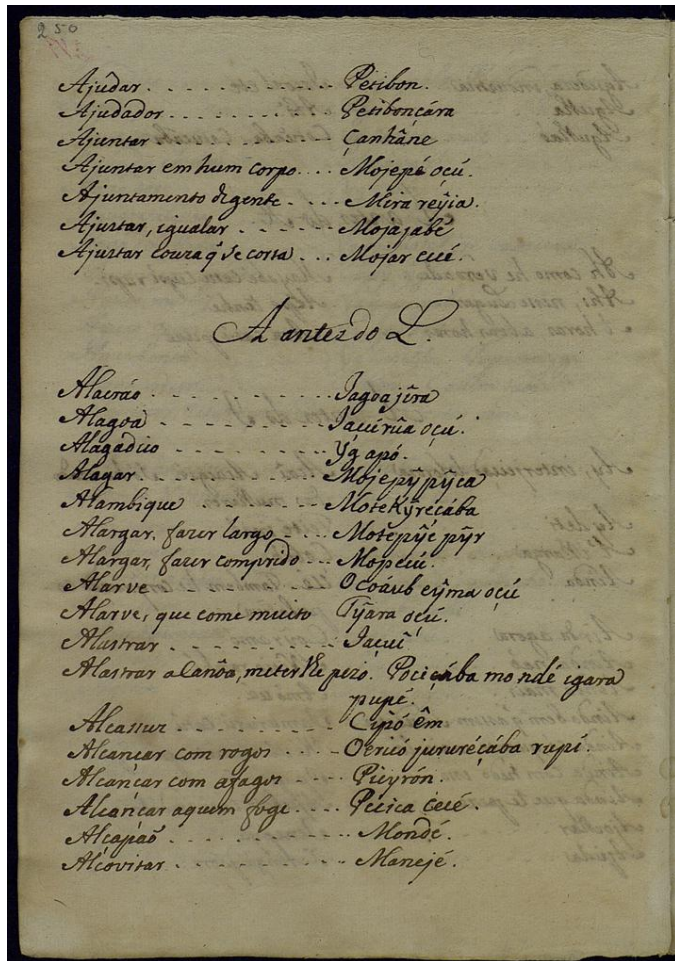 250
Ajudar. . . . . . . . . . . Petibon.
Ajudador. . . . . . . . . Petibonçára
Ajuntar . . . . . . . . . Çanhâne
Ajuntar em hum corpo . . . Mojepé oçú.
Ajuntamento degente. . . . Mira reŷia.
Ajustar, igualar . . . . . . Mojajabé
Ajustar couza q̃ se corta . . . Mojar cué.
A antes do L.
Alacráo . . . . . . . . . Jagoajîra
Alagoa . . . . . . . . . oçú.
Alagadico . . . . . . . . Yg apó.
Alagar. . . . . . . . . . Mojepŷpŷca
Alambique . . . . . . . . Motekŷrecába
Alargar, fazer largo . . . Motepŷc pŷr
Alargar, fazer comprido . . . Mopecú.
Alarve . . . . . . . . . Ocoáub eŷma oçú
Alarve, que come muito Tŷara oçú.
Alastrar . . . . . . . . . Jacuî
Alastrar a Canôa, meter lhe pezo. mondé igara
pupé.
Alcassuz . . . . . . . . . Cipó êm
Alcançar com rogos . . . . Oericó jururéçába rupí.
Alcançar com afagos . . . . Picŷrón.
Alcançar aquem foge . . . . Pecica cecé.
Alçapaõ . . . . . . . . . Mondé.
Alcovitar . . . . . . . . . Manejé.